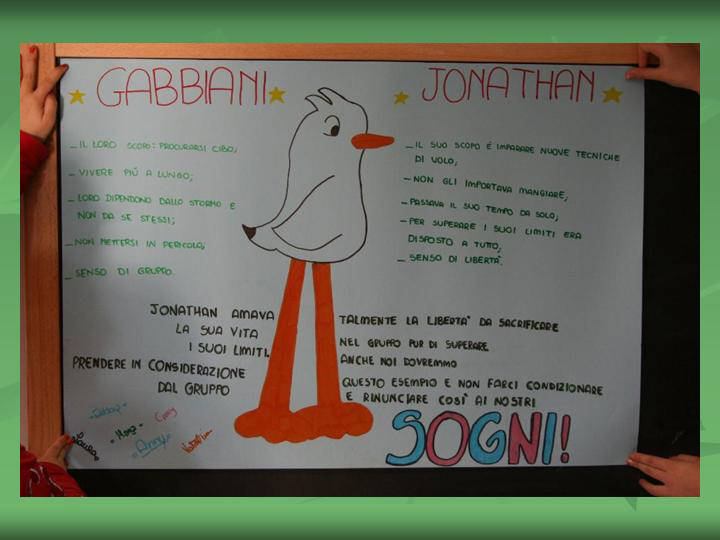 GABBIANI
_ IL LORO SCOPO: PROCURARSI CIBO;
_ VIVERE PIÚ A LUNGO;
_ LORO DIPENDONO DALLO STORMO E
NON DA SE STESSI;
_ NON METTERSI IN PERICOLO;
_ SENSO DI GRUPPO.
JONATHAN
_ IL SUO SCOPO É IMPARARE NUOVE TECNICHE
DI VOLO;
_ NON GLI IMPORTAVA MANGIARE;
_ PASSAVA IL SUO TEMPO DA SOLO;
_ PER SUPERARE I SUOI LIMITI ERA
DISPOSTO A TUTTO;
_ SENSO DI LIBERTA'.
JONATHAN AMAVA TALMENTE LA LIBERTA' DA SACRIFICARE
LA SUA VITA NEL GRUPPO PUR DI SUPERARE
I SUOI LIMITI. ANCHE NOI DOVREMMO
PRENDERE IN CONSIDERAZIONE QUESTO ESEMPIO E NON FARCI CONDIZIONARE
DAL GRUPPO E RINUNCIARE COSÌ AI NOSTRI
SOGNI!
Laura